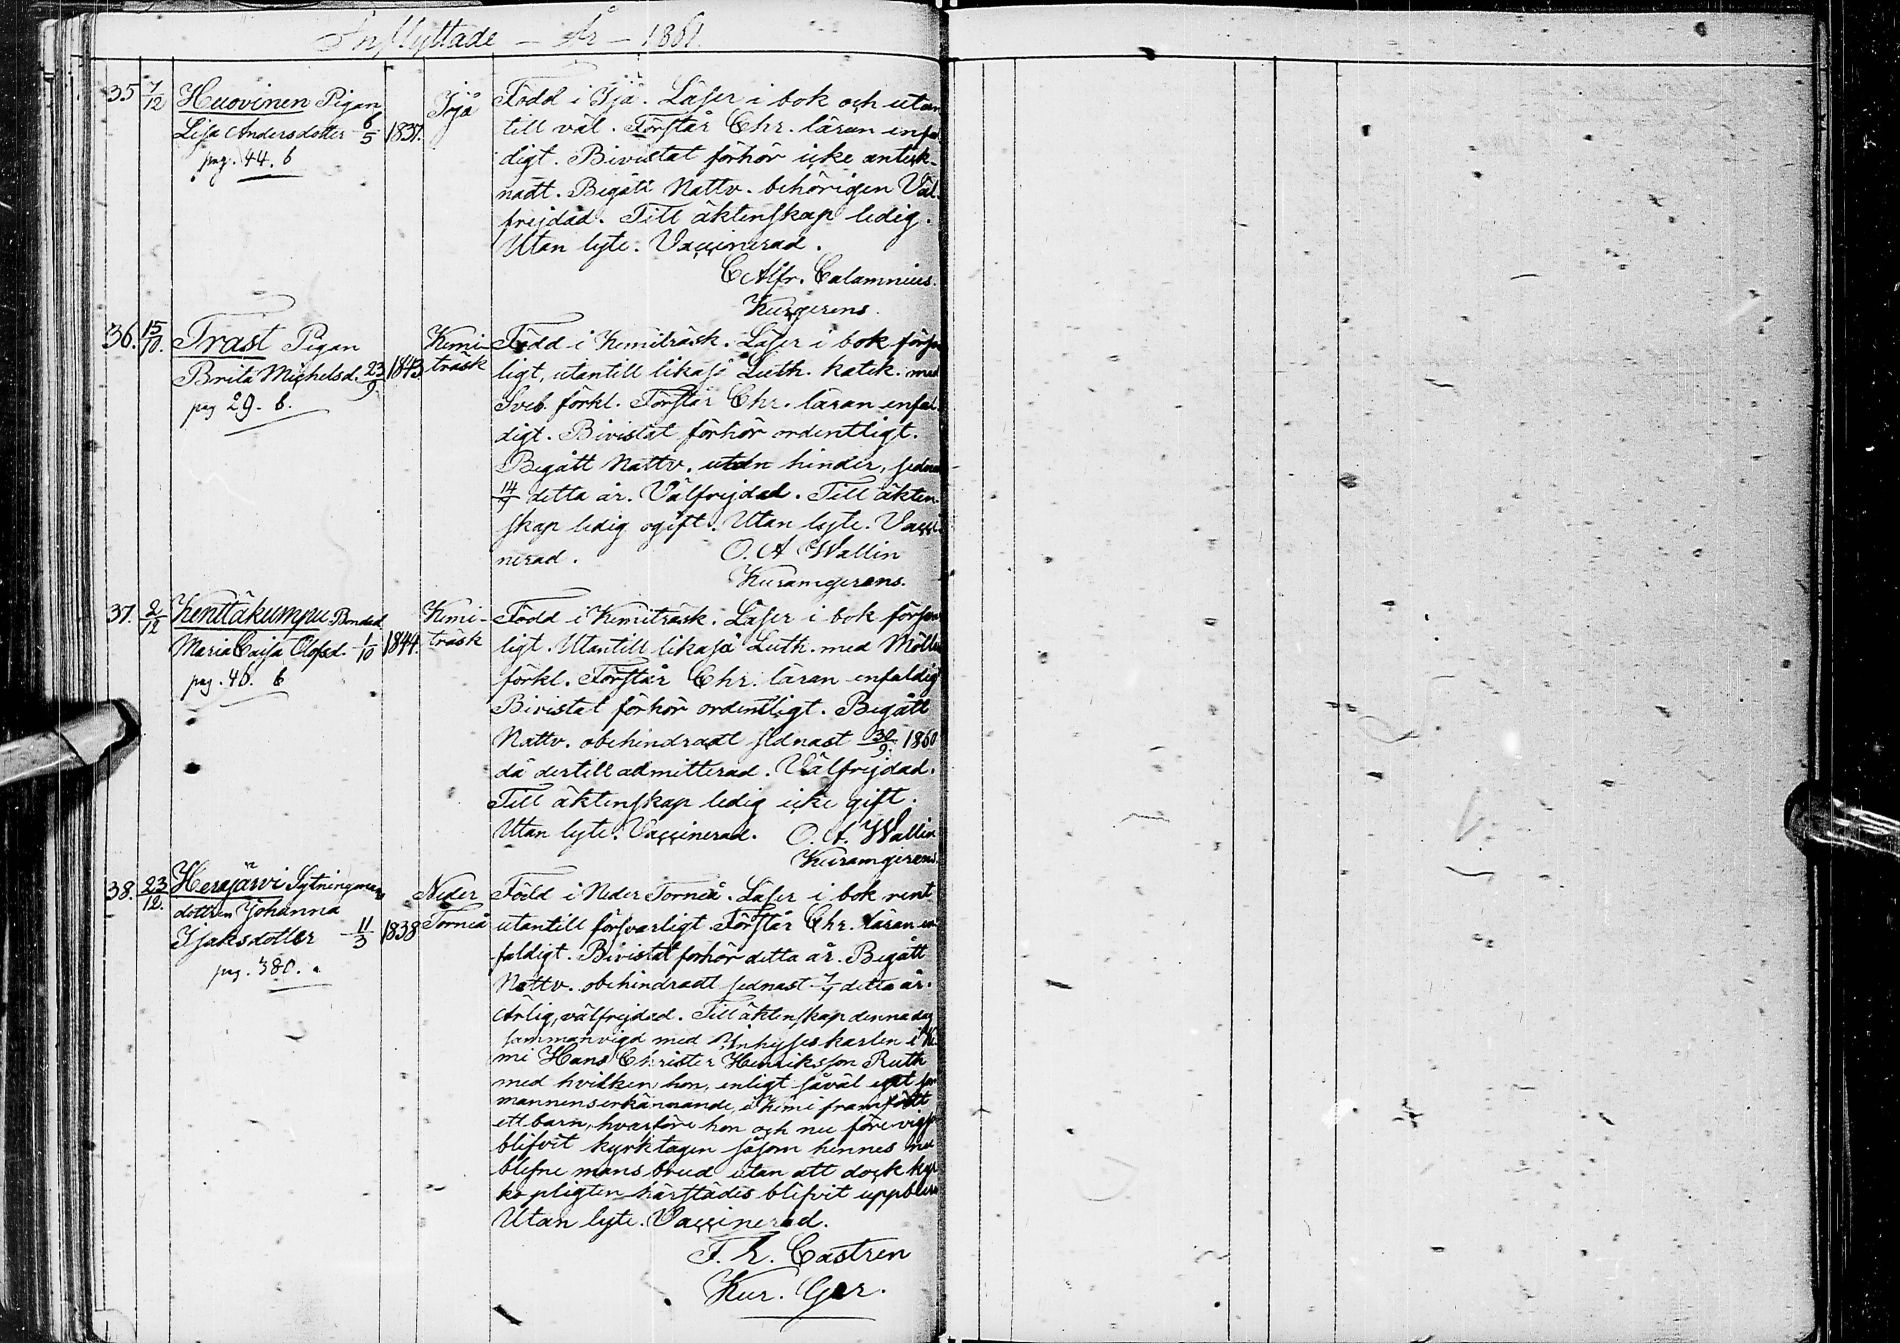 Inflyttade – År – 1861.
35 7/12 Huovinen Pigan
Lisa Andersdotter 6/5 1837.
pag. 44. b
Ijå
Född i Ijå. Läser i bok och utan
till väl. Förstår Chr. läran enfal
digt. Bivistat förhör icke anteck-
nadt. Begått Nattv. behörigen Väl
frejdad. Till äktenskap ledig.
Utan lyte. Vaccinerad.
C Alfr. Calamnius.
Kurgerens.
36. 15/10. Trast Pigan
Brita Michelsd. 23/9 1843.
pag 29. b.
Kemi-
träsk
Född i Kemiträsk. Läser i bok försva
ligt, utantill likaså Luth. katek. med
Sveb. förkl. Förstår Chr. läran enfal
digt. Bivistat förhör ordentligt.
Begått Nattv. utan hinder, sednast
14/7 detta år. Välfrejdad. Till äkten
skap ledig ogift. Utan lyte. Vacci
nerad. O. A Wallin
Kuramgerens.
37. 2/12 Kenttäkumpu Bonded.
Maria Caisa Olofsd. 1/10 1844.
pag. 46. b
Kemi-
träsk
Född i Kemiträsk. Läser i bok försvar
ligt. Utantill likaså Luth. med Möllers
förkl. Förstår Chr. läran enfaldig
Bivistat förhör ordentligt. Begått
Nattv. obehindradt sednast 30/9. 1860
då dertill admitterad. Välfrejdad.
Till äktenskap ledig icke gift.
Utan lyte. Vaccinerad. O. A. Wallin
Kuramgerens.
38. 23/12. Herajärvi Sytningmans
dottren Johanna
Isaksdotter 11/3 1838
pag. 380. a
Neder
Torneå
Född i Neder Torneå. Läser i bok rent
utantill försvarligt Förstår Chr. läran en
faldigt. Bivistat förhör detta år. Begått
Nattv. obehindradt sednast 7/7 detta år.
Ärlig, välfrejdad. Till äktenskap denna dag
sammanvigd med Inhyseskarlen i Ke
mi Hans Christer Henriksson Ruth
med hvilken hon, enligt såväl eget som
mannens erkännande, i Kemi framfödt
ett barn, hvarföre hon och nu före vigs
blifvit kyrktagen såsom hennes nu
blefne mans brud utan att dock kyr
kopligten härstädes blifvit uppburen
Utan lyte. Vaccinerad.
F. E. Castren
Kur. Ger.